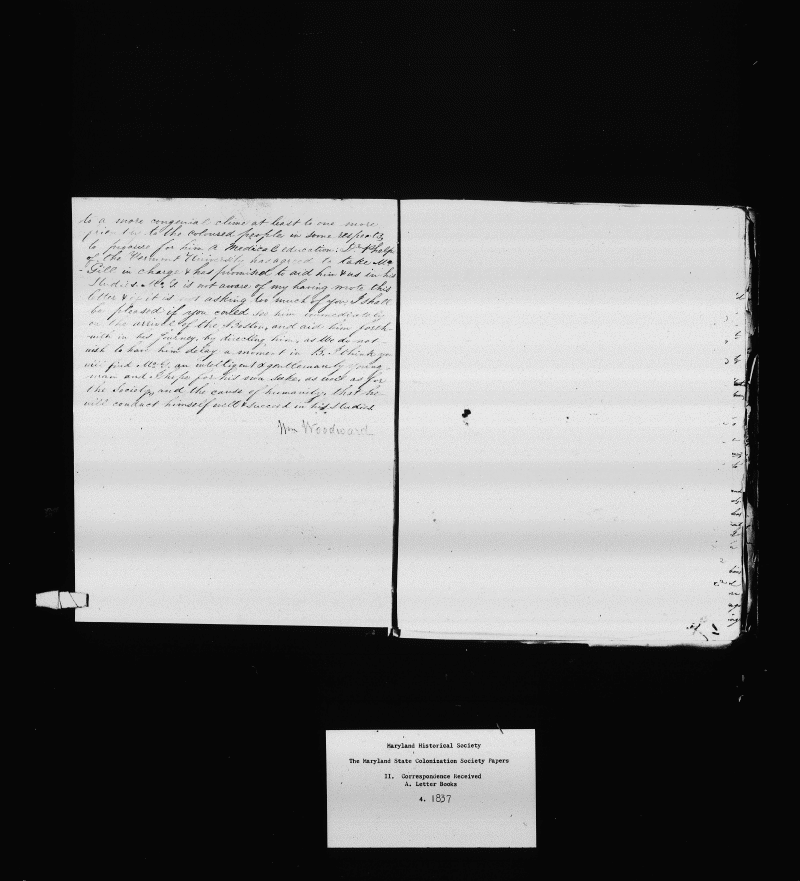 to a more congenial clime at least to one more
to the coloured people in some respects,
to procure for him a Medical education. Dr Phelps
of the Vermont University has agreed to take Mc
Gill in charge & has promised to aid him & us in his
Studies. Mc. G. is not aware of my having wrote this
letter & if it is not asking too much of you, I shall
be pleased if you could see him immediately
on the arrival of the Boston, and aid him forth-
with in his journey, by directing him, as We do not
wish to have him delay a moment in B. I think you
will find Mc. G. an intelligent & gentlemanly young
man and I hope for his own sake, as well as for
the Society, and the cause of humanity, that he
will conduct himself well & succeed in his studies
Wm Woodward
Maryland Historical Society
The Maryland State Colonization Society Papers
II. Correspondence Received
A. Letter Books
4. 1837